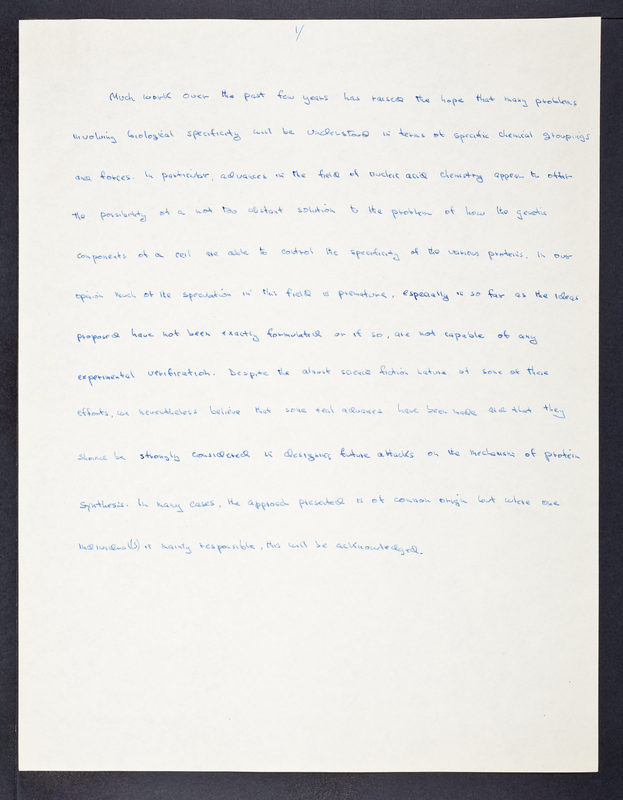 1/
Much work over the past few years has raised the hope that many problems
involving biological specificity will be understood in terms of specific chemical groupings
and forces. In particular, advances in the field of nucleic acid chemistry appear to offer
the possibility of a not too distant solution to the problem of how the genetic
components of a cell are able to control the specificity of the various proteins. In our
opinion much of the speculation in this field is premature, especially in so far as the ideas
proposed have not been exactly formulated or if so, are not capable of any
experimental verification. Despite the almost science fiction nature of some of these
efforts, we nevertheless believe that some real advances have been made and that they
should be strongly considered in designing future attacks on the mechanism of protein
synthesis. In many cases, the approach presented is of common origin but where one
individual(s) is mainly responsible, this will be acknowledged.